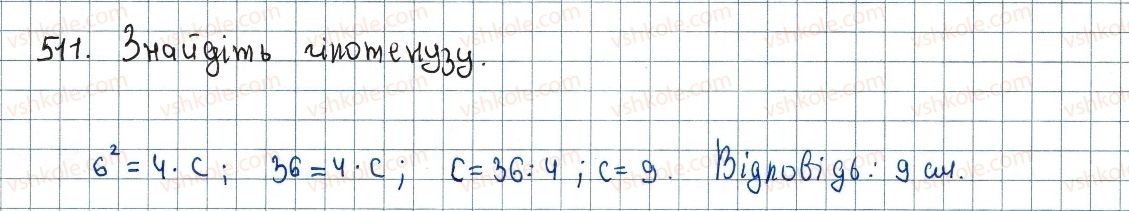 511. Знайдіть гіпотенузу.
6² = 4 · c ; 36 = 4 · c ; c = 36 : 4 ; c = 9 . Відповідь: 9 см.